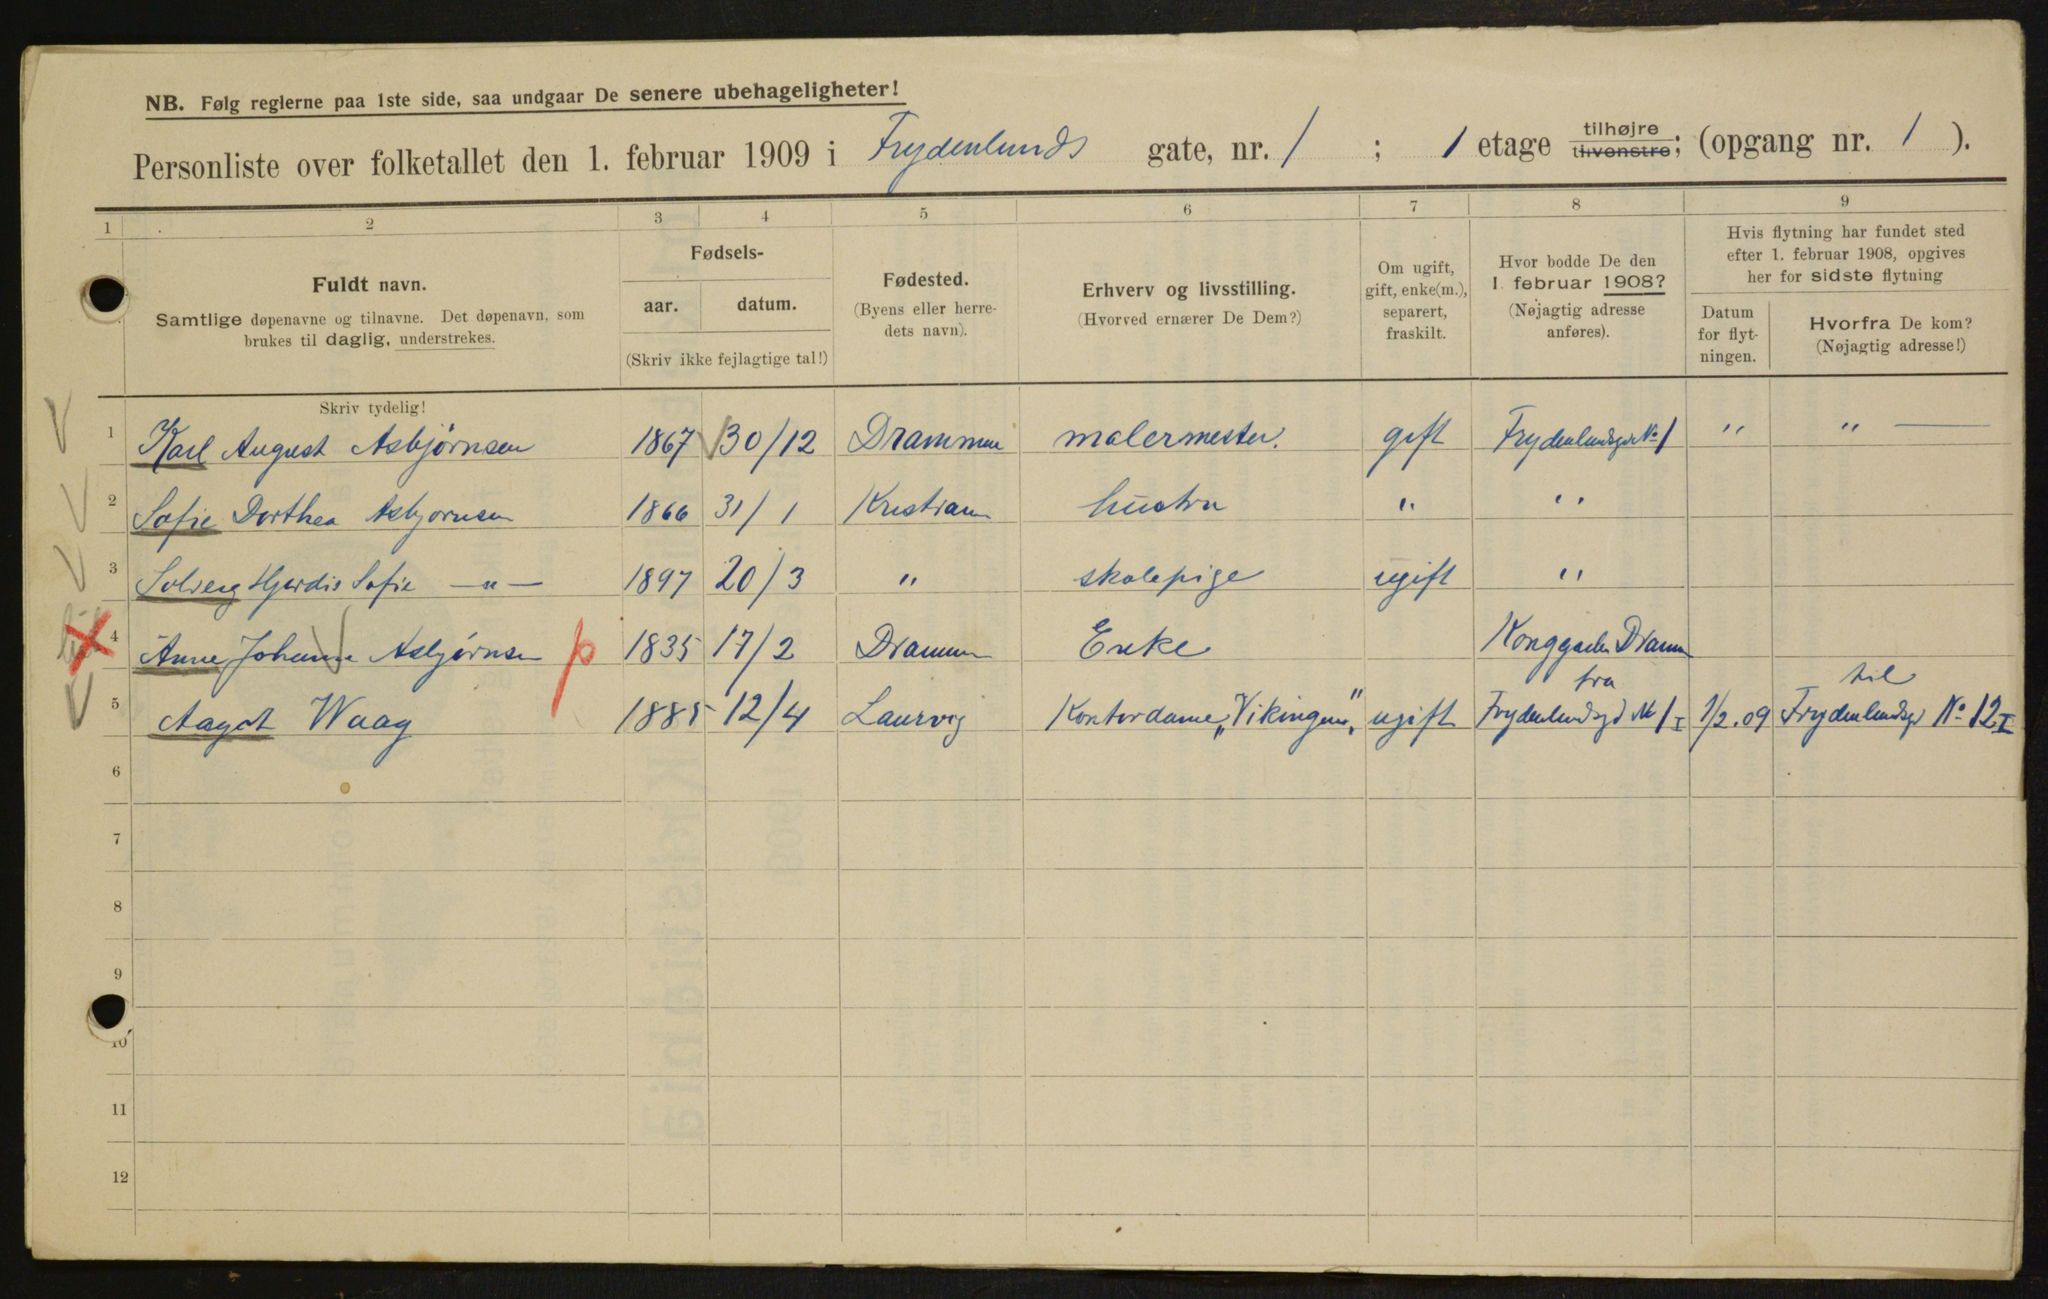 NB. Følg reglerne paa 1ste side, saa undgaar De senere ubehageligheter!
Personliste over folketallet den 1. februar 1909 i Frydenlunds gate, nr. 1 ; 1 etage tilhøjre tilvenstre; (opgang nr. 1 ).
1 2 3 4 5 6 7 8 9
Fuldt navn.
Samtlige døpenavne og tilnavne. Det døpenavn, som
brukes til daglig, understrekes.
Skriv tydelig!
Fødsels-
aar. datum.
(Skriv ikke fejlagtige tal!)
Fødested.
(Byens eller herre-
dets navn).
Erhverv og livsstilling.
(Hvorved ernærer De Dem?)
Om ugift,
gift, enke(m.),
separert,
fraskilt.
Hvor bodde De den
1. februar 1908?
(Nøjagtig adresse
anføres).
Hvis flytning har fundet sted
efter 1. februar 1908, opgives
her for sidste flytning
Datum
for flyt-
ningen.
Hvorfra De kom?
(Nøjagtig adresse!)
1 Karl August Asbjørnsen 1867 30/12 Drammen malermester. gift Frydenlundsgt No 1 " " —
2 Sofie Dorthea Asbjørnsen 1866 31/1 Kristiania hustru " "
3 Solveig Hjørdis Sofie —"— 1897 20/3 " skolepige ugift "
4 Anne Johanne Asbjørnsen p 1835 17/2 Drammen Enke Drammen
5 Aagot Waag 1885 12/4 Laurvig Kontordame „Vikingen" ugift fra Frydenlundsgt No 1 I 1/2.09 til Frydenlundsgt No 12 I
6
7
8
9
10
11
12